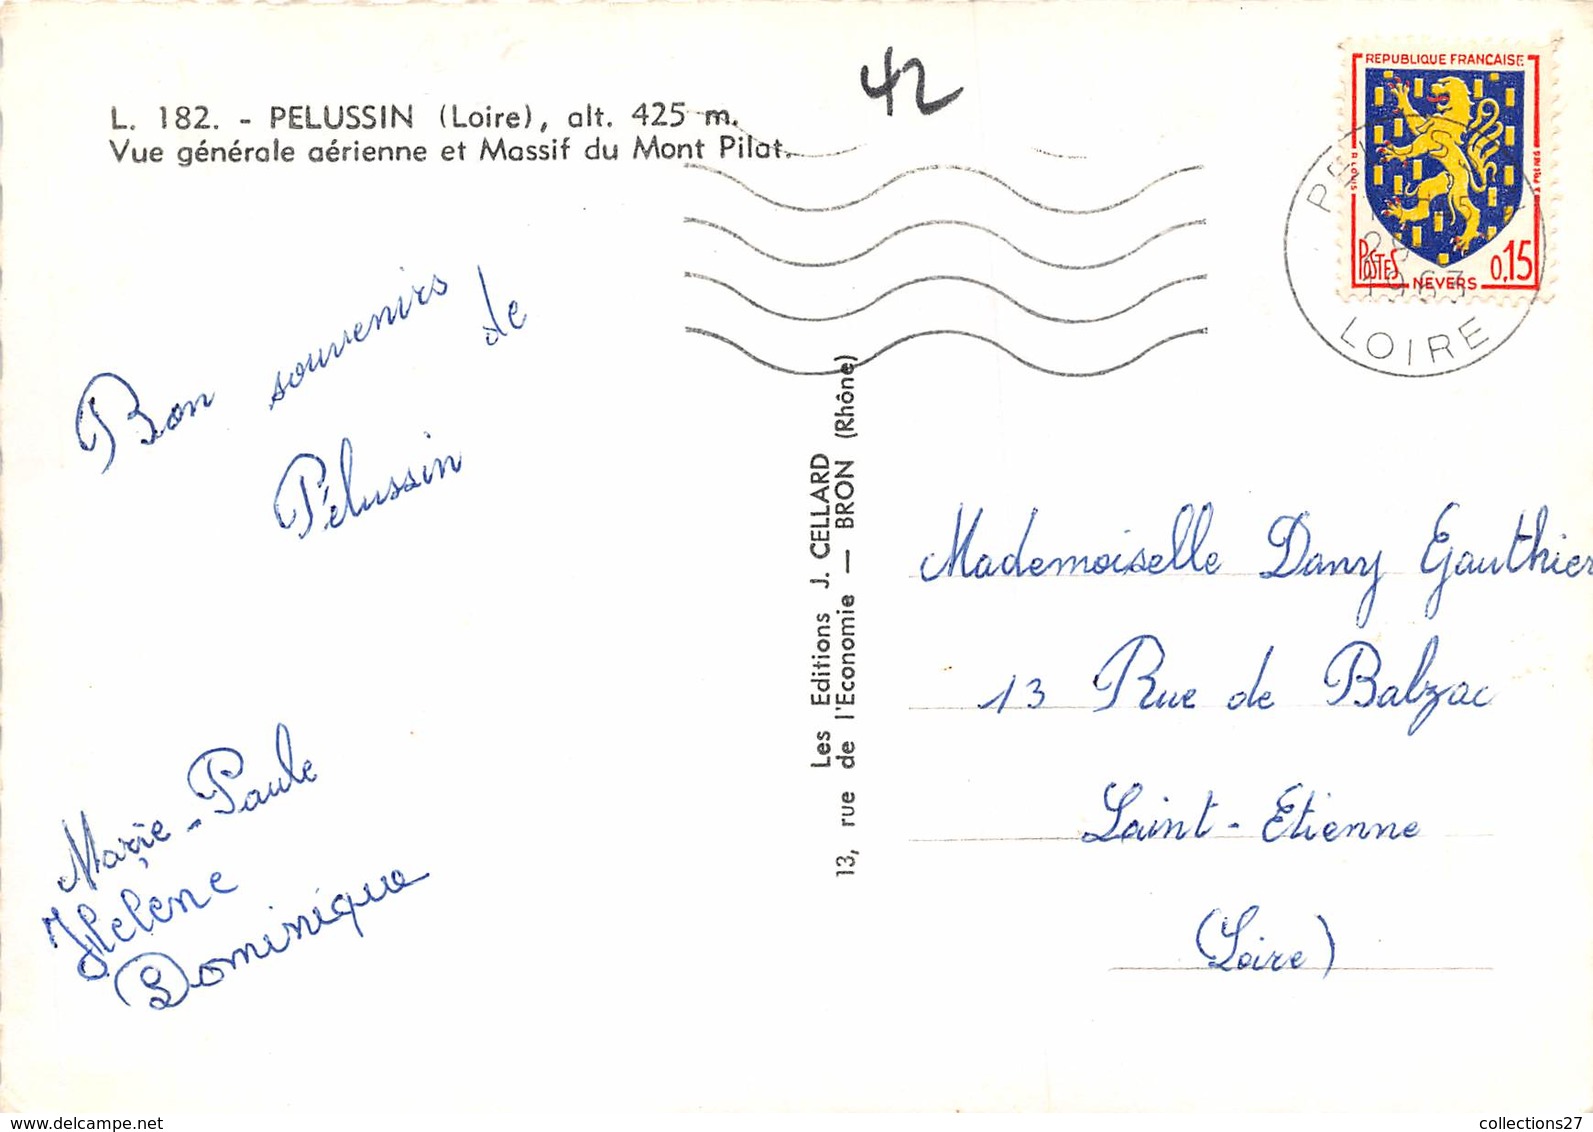 L. 182. - PELUSSIN (Loire), alt. 425 m.
Vue générale aérienne et Massif du Mont Pilat.
42
REPUBLIQUE FRANCAISE
R. LOUIS
POSTES
NEVERS
0,15
LOIRE
1963
Bon souvenirs
de
Pélussin
Marie-Paule
Helene
Dominique
Les Editions J. CELLARD
13, rue de l'Economie — BRON (Rhône)
Mademoiselle Dany Gauthier
13 Rue de Balzac
Saint-Etienne
(Loire)
collections27